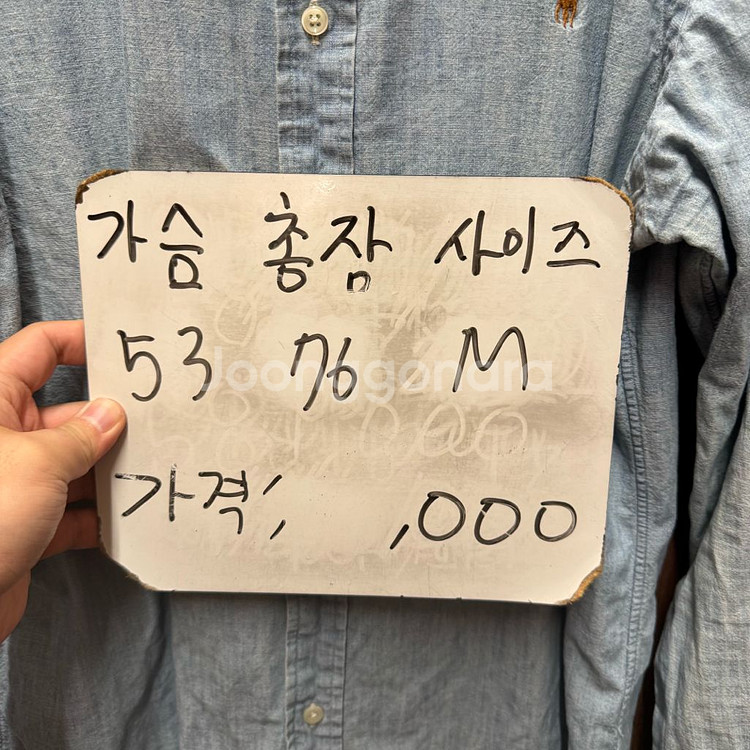 가슴 총장 사이즈
53 76 M
Joonggonara
가격; ,000